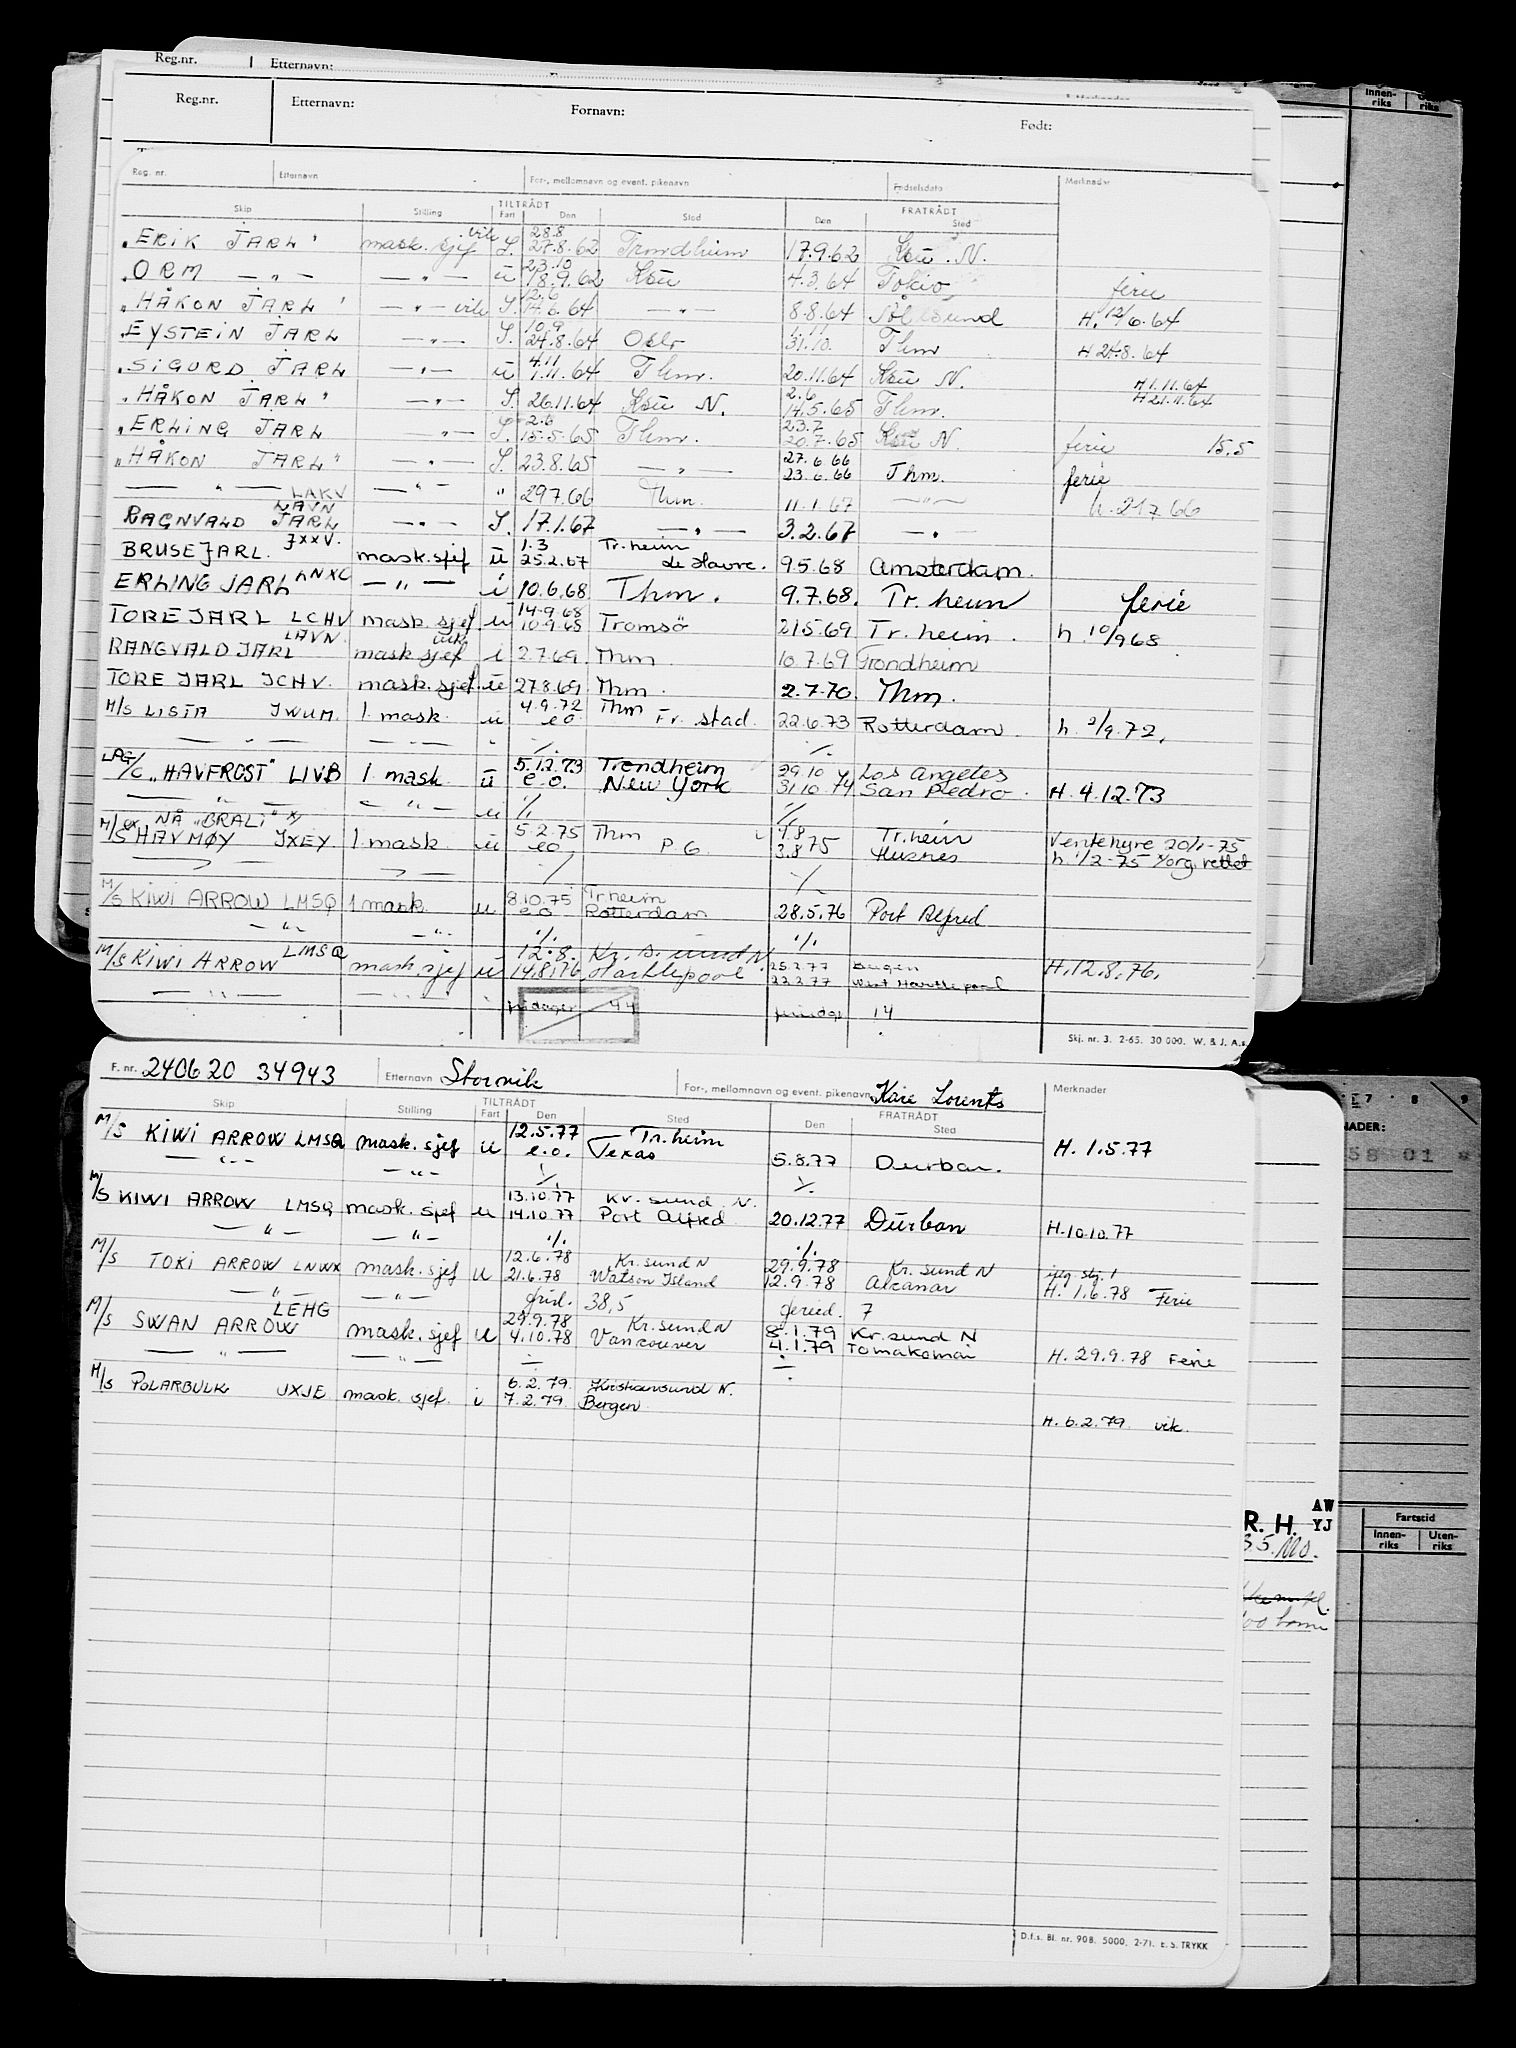 Reg.nr. Etternavn:
Reg.nr. Etternavn: Fornavn: Født:
Reg. nr. Etternavn For-, mellomnavn og event. pikenavn Fødselsdato Merknader
TILTRÅDT FRATRÅDT
Skip Stilling Fart Den Sted Den Sted
28.8.
"ERIK JARL" mask. sjef vik S. 27.8.62 Trondheim 17.9.62 Ksu. N.
23.10
"ORM — " — — " — u 18.9.62 Ksu 4.3.64 Tokio ferie
12.6
"HÅKON JARL" — " — vik S. 14.6.64 — " — 8.8.64 Ålesund H. 12/6.64
10.9 1.11
EYSTEIN JARL — " — S. 24.8.64 Oslo 31.10. Thm H 24.8.64
4.11
"SIGURD JARL — " — u 1.11.64 Thm. 20.11.64 Ksu N. H 1.11.64
2.6 H 21.11.64
"HÅKON JARL" — " — S. 26.11.64 Ksu N. 14.5.65 Thm.
2.6 23.7
"ERLING JARL — " — S. 15.5.65 Thm. 20.7.65 Ksu N ferie 15.5
27.6.66
"HÅKON JARL" — " — S. 23.8.65 — " — 23.6.66 Thm. ferie
— " — LAKV — " — " 29.7.66 Thm. 11.1.67 — " — h. 21.7.66
LAVN
RAGNVALD JARL — " — S. 17.1.67 — " — 3.2.67 — " —
JXXV. 1.3 Tr.heim
BRUSE JARL. mask.sjef u 25.2.67 Le Havre. 9.5.68 Amsterdam.
ERLING JARL LNXC — " — i 10.6.68 Thm. 9.7.68. Tr.heim ferie
14.9.68
TORE JARL LCHV mask. sjef u 10.9.68 Tromsö 21.5.69 Tr.heim. h. 10/9 68
LAVN. vik.
RANGVALD JARL mask sjef i 2.7.69. Thm 10.7.69 Trondheim
TORE JARL JCHV. mask. sjef. u 27.8.69 Thm. 2.7.70. Thm.
4.9.72 Thm
M/S LISTA JWUM. 1. mask. u eo Fr. stad. 22.6.73 Rotterdam. h. 2/9.72,
— " — — " — " ./. ./.
5.12.73 Trondheim 29.10 Los Angeles
LPG/C "HAVFROST" LIVB 1. mask. u e.o. New York 31.10.74 San Pedro. H. 4.12.73
— " — — " — u ./. ./.
NÅ "BRALI"
5.2.75 Thm 4.8 Tr.heim Ventehyre 20/1-75
M/S HAVMØY JXEY 1. mask. u eo P.G. 3.8 75 Husnes h. 1/2-75
./. ./.
8.10.75 Tr.heim
M/S KIWI ARROW LMSQ 1 mask. u e.o. Rotterdam 28.5.76 Port Alfred
— " — — " — ./. ./.
LMSQ 12.8. Kr. sund N. 25.2.77 Bergen
M/S KIWI ARROW mask. sjef u 14.8.76 Hartlepool 22.2.77 West Hartlepool H. 12.8.76.
— " — — " — " fridager 44 fridgr 14
Skj. nr. 3. 2-65. 30 000. W. & J. A.s.
F. nr. 240620 34943 Etternavn Storvik For-, mellomnavn og event. pikenavn Kåre Lorents Merknader
TILTRÅDT FRATRÅDT
Skip Stilling Fart Den Sted Den Sted
12.5.77 Tr.heim
M/S KIWI ARROW LMSQ mask. sjef u e.o. Texas 5.8.77 Durban. H. 1.5.77
— " — — " — ./. ./.
13.10.77 Kr. sund. N.
M/S KIWI ARROW LMSQ mask. sjef u 14.10.77 Port Alfred 20.12.77 Durban H. 10.10.77
— " — — " — ./. ./.
12.6.78 Kr.sund N 29.9.78 Kr. sund N
M/S TOKI ARROW LNWX mask. sjef u 21.6.78 Watson Island 12.9.78 Alcanar H. 1.6.78 Ferie
— " — — " — frid. 38,5 feried. 7
LEHG 29.9.78 Kr.sund N 8.1.79 Kr.sund N
M/S SWAN ARROW mask. sjef u 4.10.78 Vancouver 4.1.79 Tomakomai H. 29.9.78 Ferie
— " — — " — ÷ ÷
6.2.79. Kristiansund N.
M/S POLARBULK JXJE mask. sjef. i 7.2.79 Bergen
H. 6.2.79. vik.
D.f.s. Bl. nr. 908. 5000. 2-71. E. S. TRYKK
Innen-riks Uten-riks
7 8 9
58 01
R. H. AW
YJ
Fartstid
Innen-riks Uten-riks